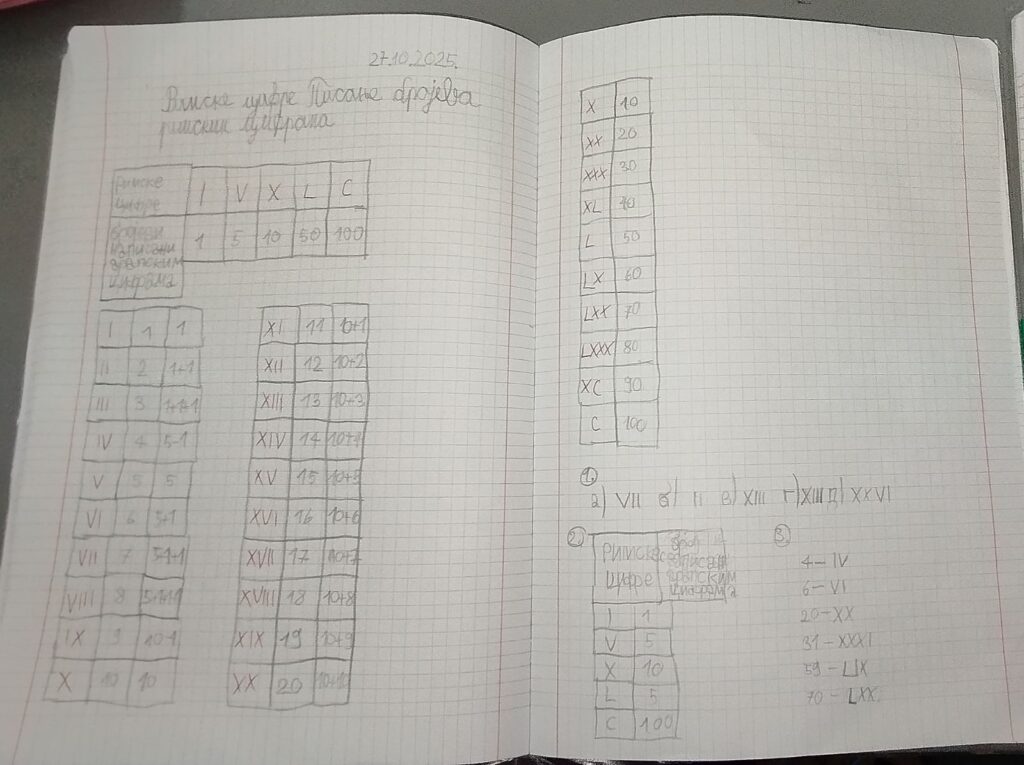 27.10.2025.
Римске цифре Писање бројева
римским цифрама
Римске I V X L C
цифре
бројеви 1 5 10 50 100
написани
арапским
цифрама
I 1 1
II 2 1+1
III 3 1+1+1
IV 4 5-1
V 5 5
VI 6 5+1
VII 7 5+1+1
VIII 8 5+1+1+1
IX 9 10-1
X 10 10
XI 11 10+1
XII 12 10+2
XIII 13 10+3
XIV 14 10+4
XV 15 10+5
XVI 16 10+6
XVII 17 10+7
XVIII 18 10+8
XIX 19 10+9
XX 20 10+10
X 10
XX 20
XXX 30
XL 40
L 50
LX 60
LXX 70
LXXX 80
XC 90
C 100
1.
а) VII б) II в) XIII г) XIII д) XXVI
2.
Римске
цифре
број
написан
арапским
цифрама
I 1
V 5
X 10
L 5
C 100
3.
4-IV
6-VI
20-XX
31-XXXI
59-LIX
70-LXX